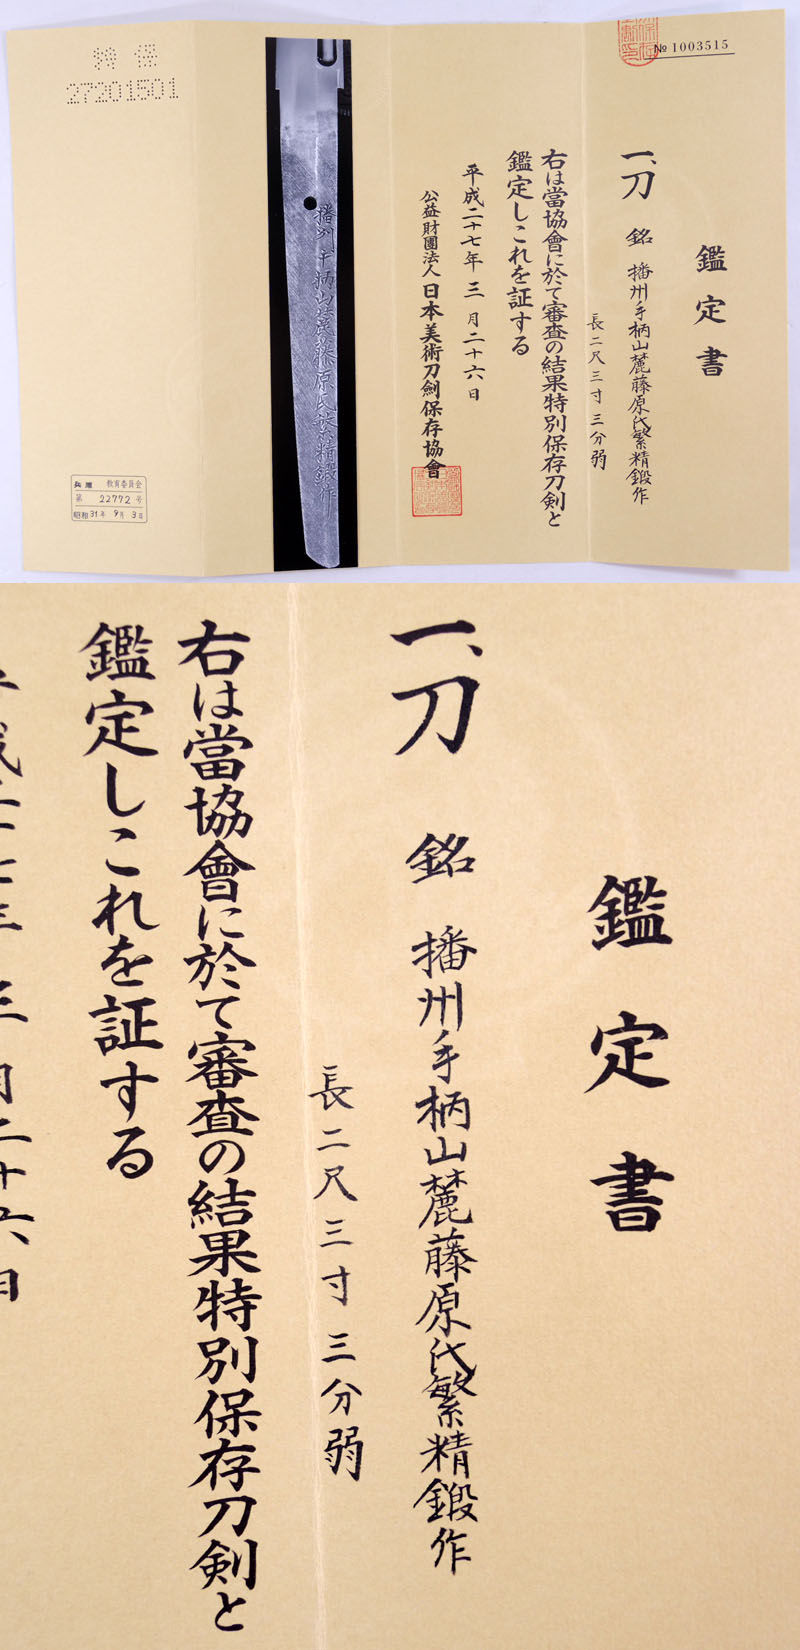 № 1003515
鑑定書
一、刀 銘 播州手柄山麓藤原氏繁精鍛作
長二尺三寸三分弱
右は當協會に於て審査の結果特別保存刀剣と
鑑定しこれを証する
平成二十七年三月二十六日
公益財團法人日本美術刀劍保存協會
播州手柄山麓藤原氏繁精鍛作
特保
27201501
兵庫 教育委員会
第 22772 号
昭和 31年 9月 3日
鑑定書
一、刀 銘 播州手柄山麓藤原氏繁精鍛作
長二尺三寸三分弱
右は當協會に於て審査の結果特別保存刀剣と
鑑定しこれを証する